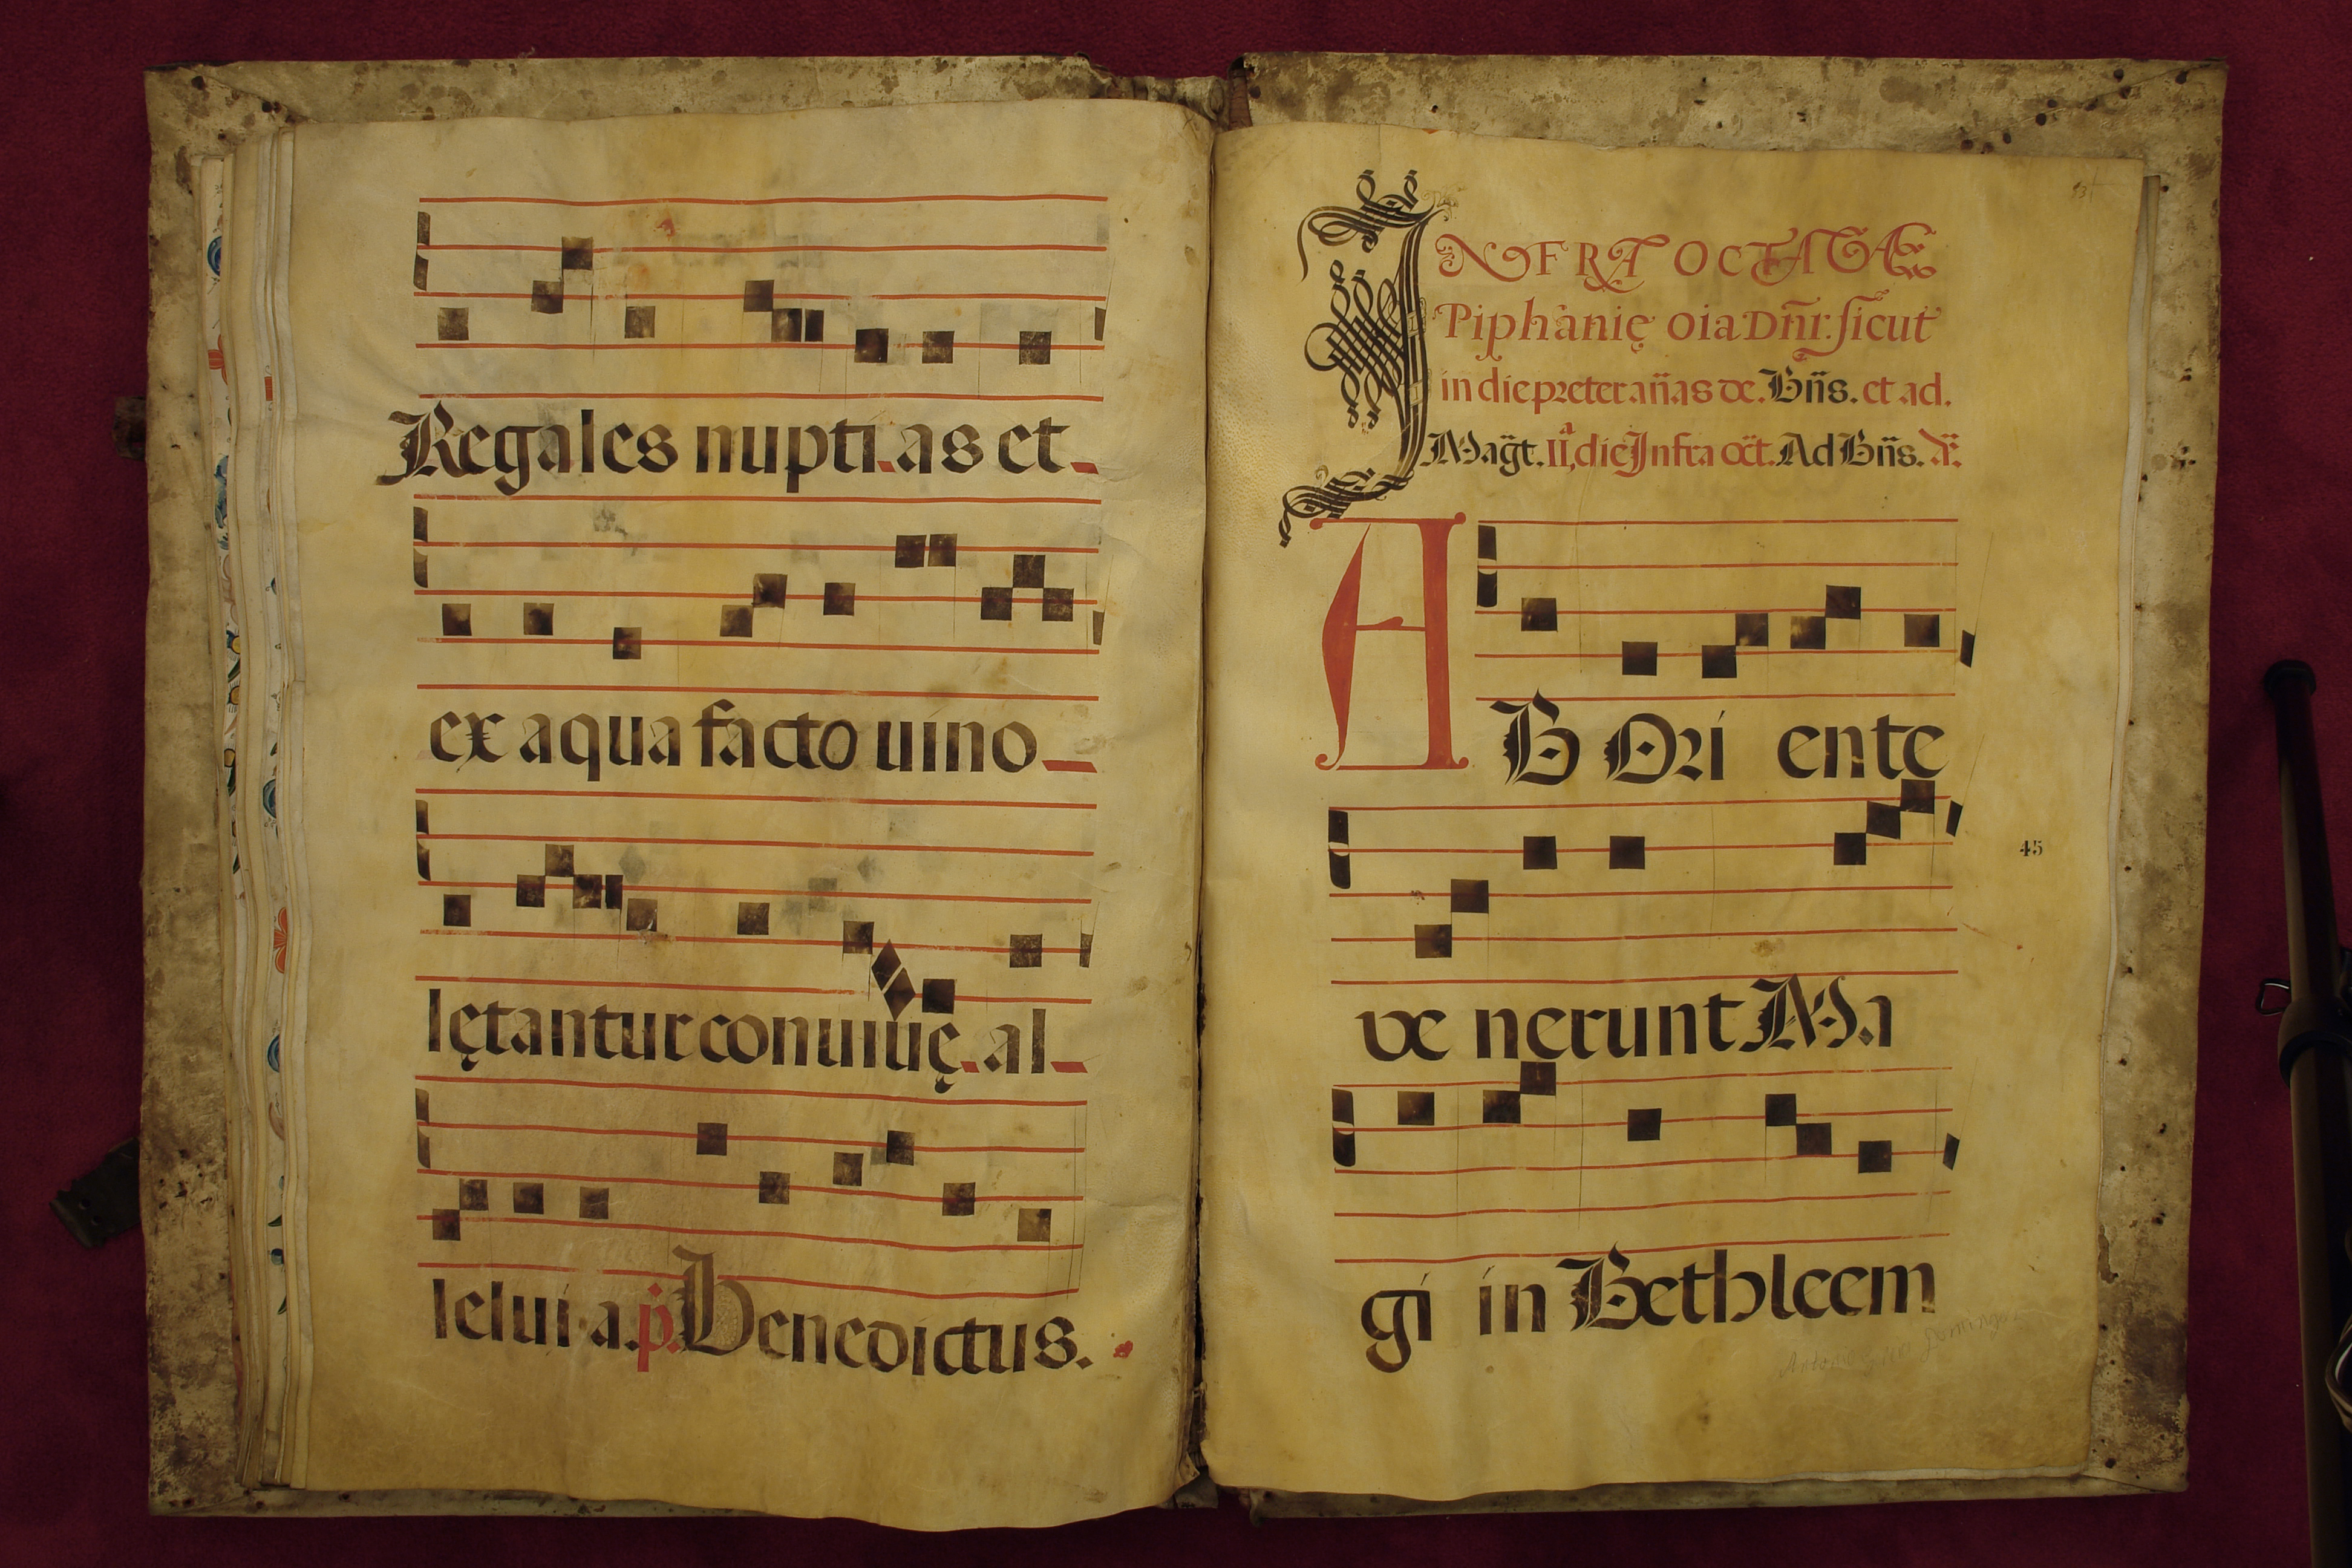 Regales nupti.as et
ex aqua facto uino
lętantur conuiuię. al
lelui a. p. Benedictus.
INFRA OCTAVAE
Piphanię oia Dñi. sicut
in die preter añas de. Bñs. et ad.
Magt. II, die Infra oct. Ad Bñs. Añ.
AB Ori ente
ve nerunt Ma
gi in Bethleem
45
Antonio Domingo